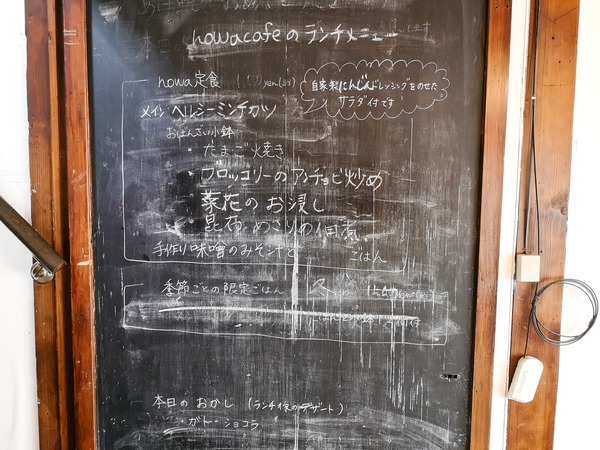 本日 nowacafeのランチメニュー
nowa定食
自家製にんじんドレッシングをのせた
サラダ付です
メイン ヘルシーミンチカツ
おばんざい小鉢
・たまご焼き
・ブロッコリーのアンチョビ炒め
菜花のお浸し
・昆布
手作り味噌のみそ ごはん
季節ごとの限定ごはん 冬
本日のおかし (ランチ後のデザート)
ガトーショコラ